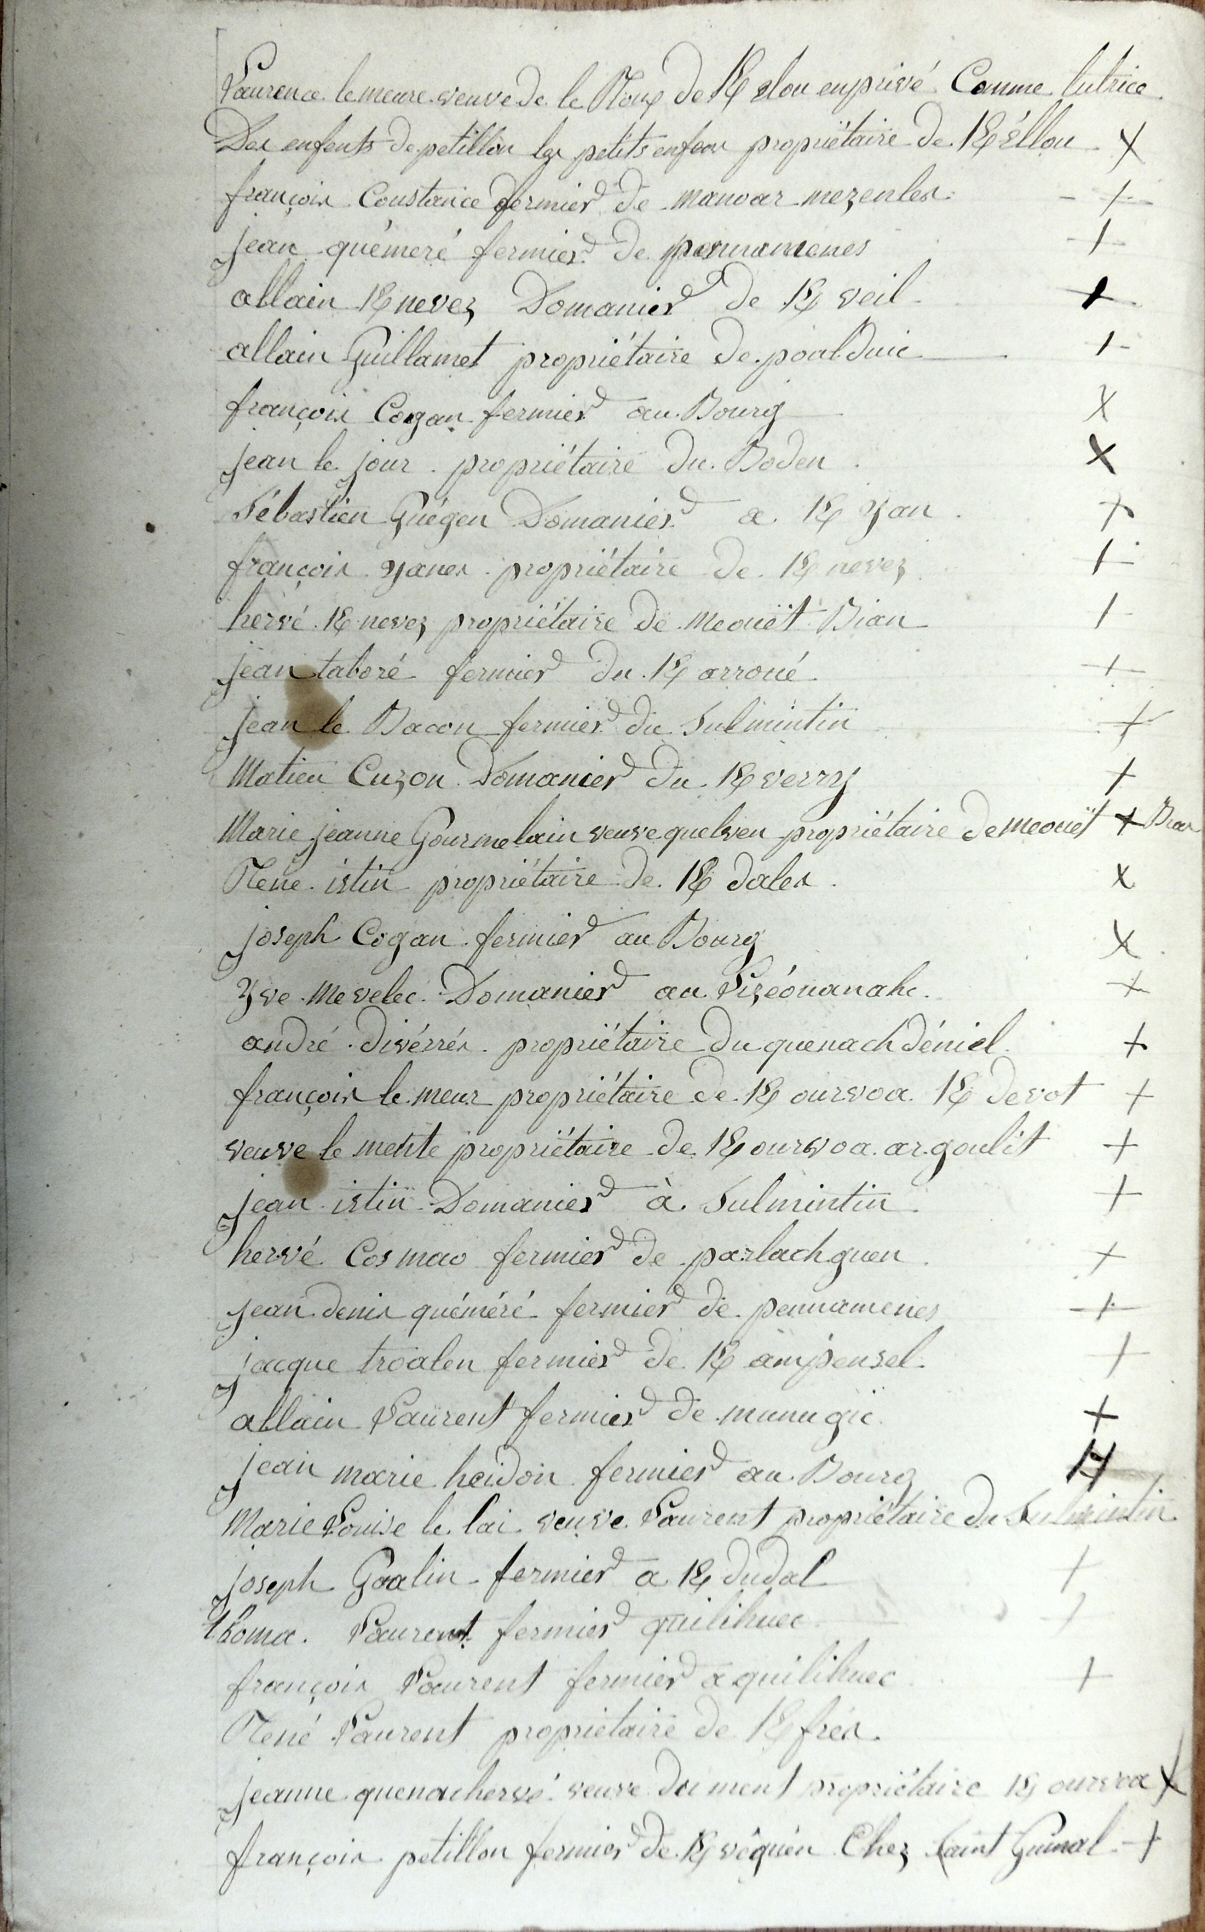 Laurence le meure veuve de le Roux de K/ elou enprivé Comme tutrice
Des enfents de petillon les petits enfean propriétaire de K/ éllou X
françois Constance fermier de manoar mezenles +
jean quéméré fermier de pennamenes +
allain K/ nevez Domanier de K/ veil +
allain Guillamet propriétaire de poulduic +
françois Cogan fermier au Bourg X
jean le jour propriétaire du Boden X
Sébastien Guégen Domanier a K/ yan +
françois yanes propriétaire de K/ nevez +
hervé K/ nevez propriétaire de meouët Bian +
jean taboré fermier du K/ arroué +
jean le Bacon fermier du Fulmintin +
Matieu Cuzon Domanier du K/ verry +
Marie jeanne Gourmelain veuve quelven propriétaire de meouët + Bian
Rene istin propriétaire de K/ dales x
joseph Cogan fermier au Bourg X
yve mevelec Domanier au Lezéouanahc +
andré divérrés propriétaire du quenach déniel +
françois le meur propriétaire de K/ ourvoa K/ devot +
veuve le mente propriétaire de K/ ourvoa argoulit +
jean istin Domanier à Fulmintin +
hervé Cosmao fermier de parlach guen +
jean denis quéméré fermier de pennamenes +
jacque troalen fermier de K/ ampensel +
allain Laurent fermier de munugic +
jean marie heidon fermier au Bourg
Marie Louise le lai veuve Laurent propriétaire du Fulmintin
joseph Goalin fermier a K/ dudal +
thoma Laurent fermier quilihuec +
françois Laurent fermier a quilihuec +
René Laurent propriétaire de K/ frés
jeanne quenachervé veuve du ment propriétaire K/ ourvoa X
françois petillon fermier de K/ véquén Chez Saint Guinal +